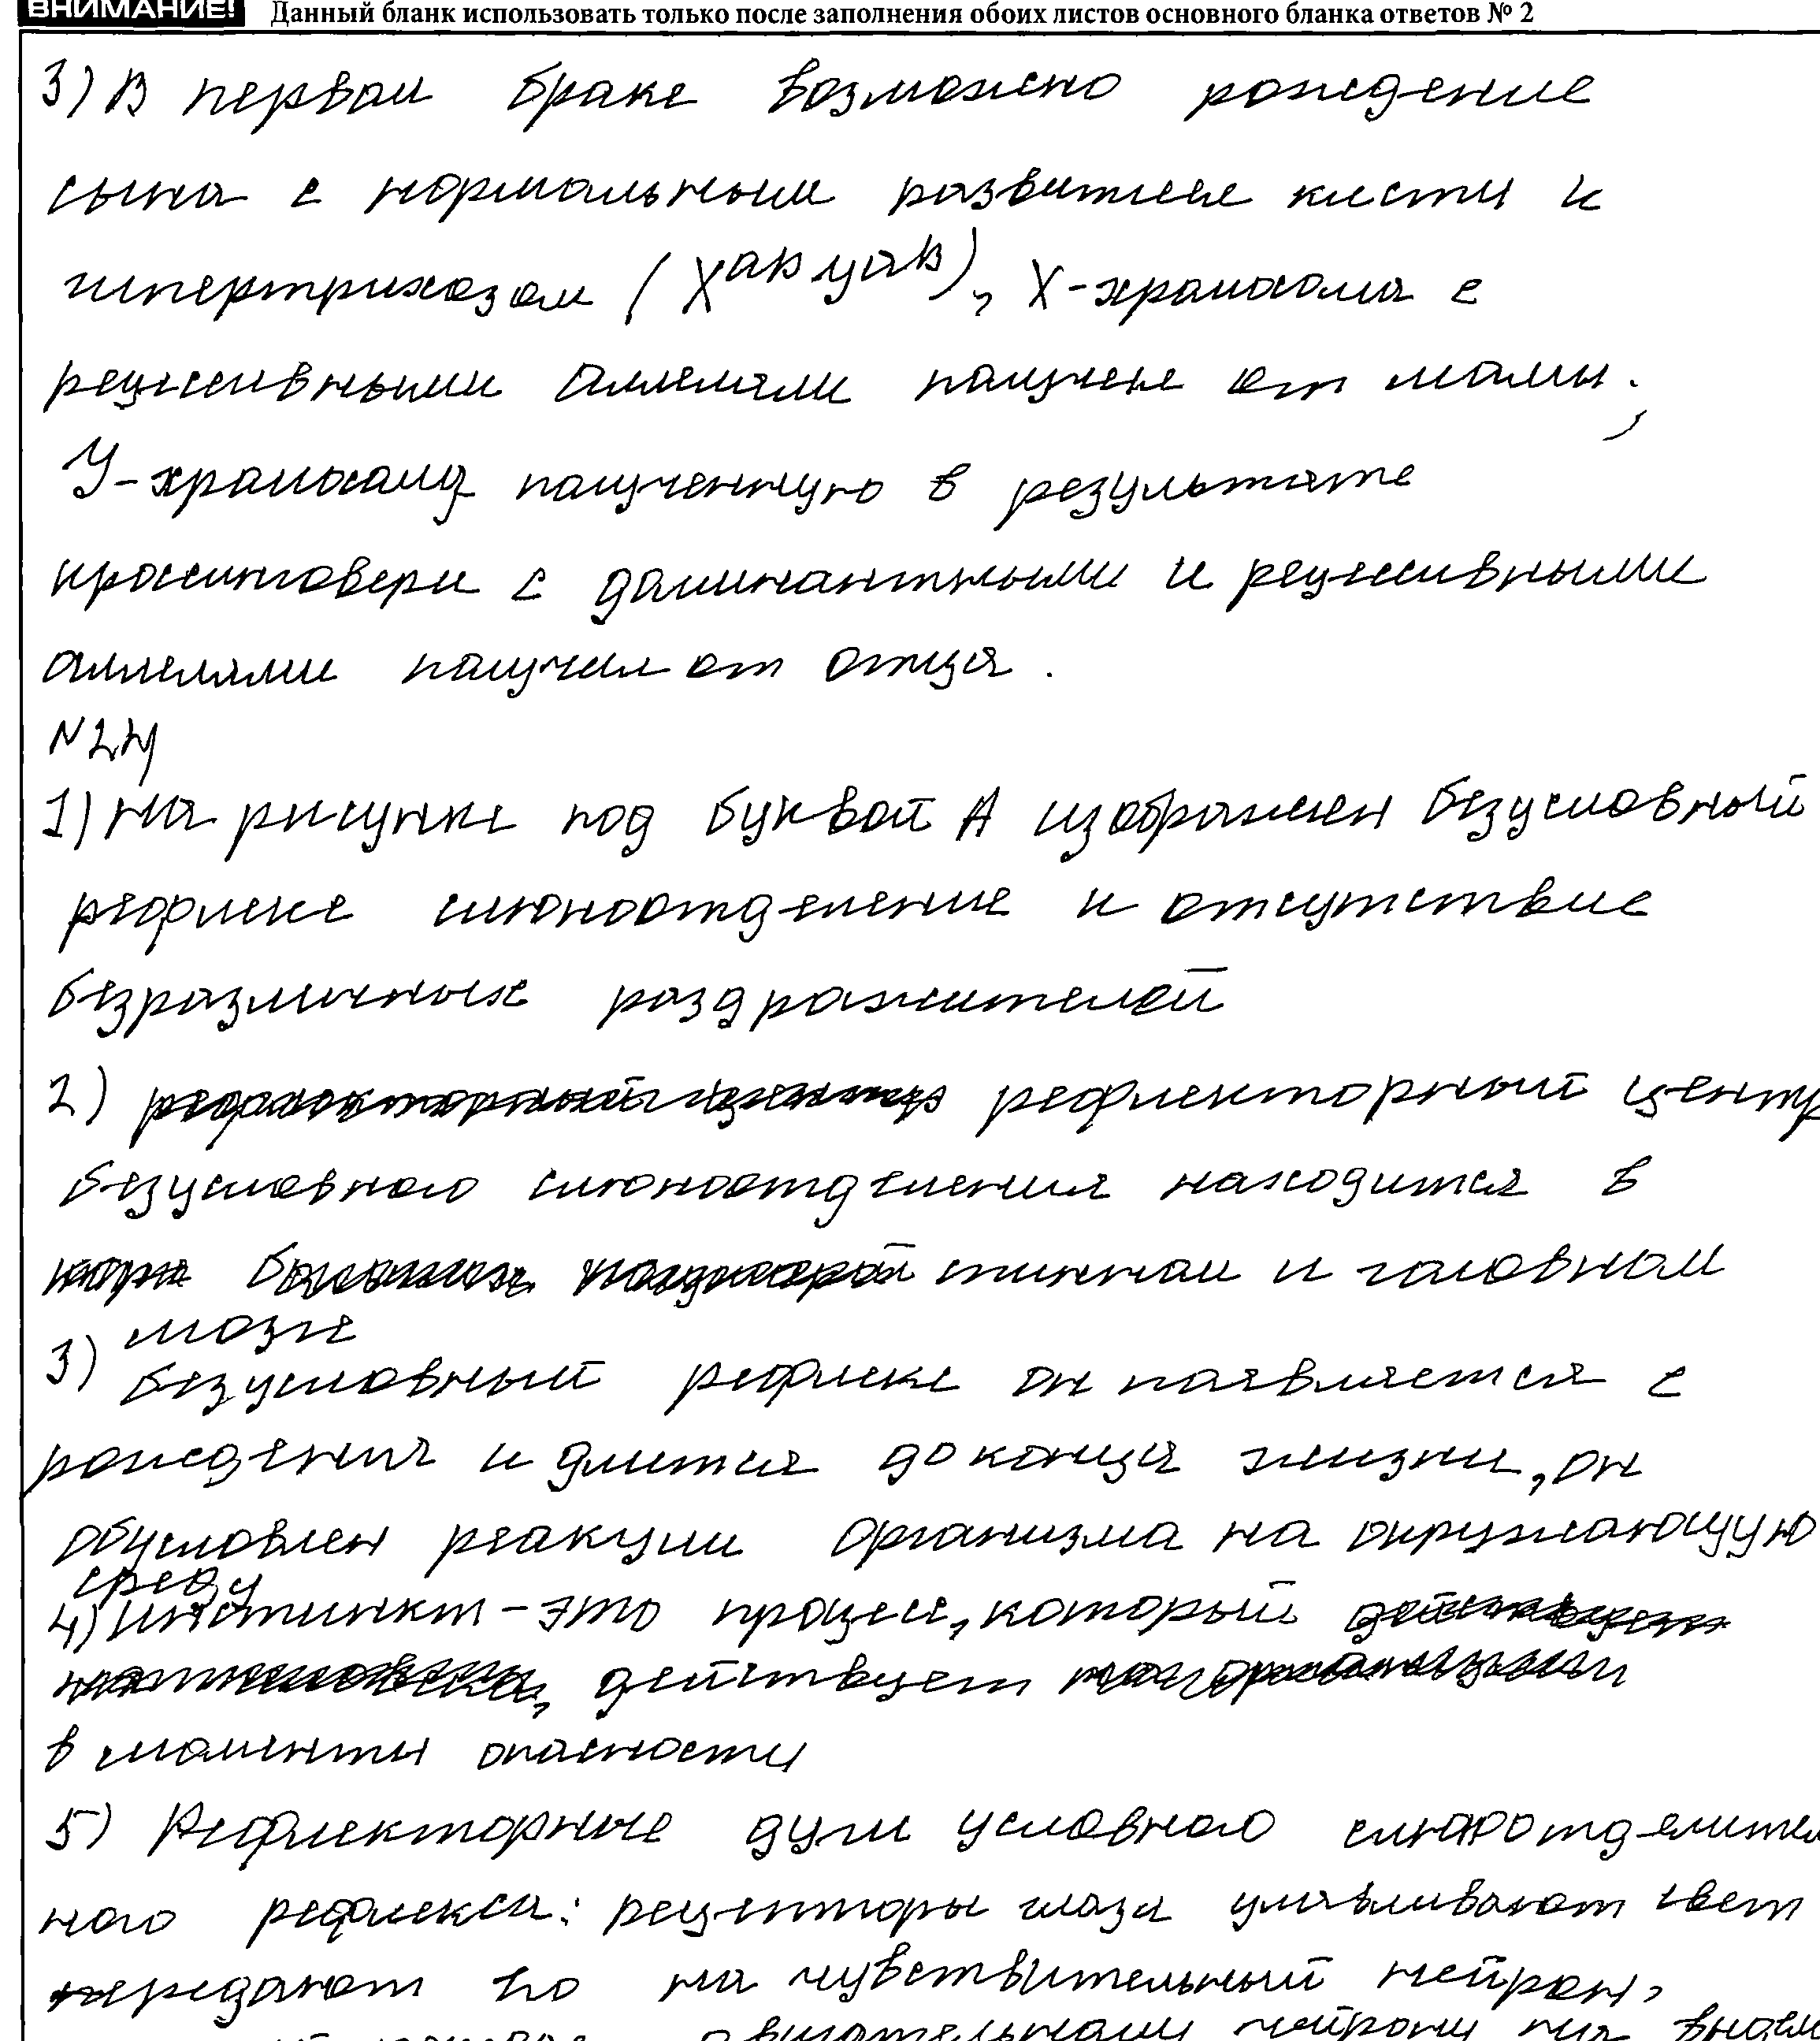 ВНИМАНИЕ! Данный бланк использовать только после заполнения обоих листов основного бланка ответов № 2
3) В первом браке возможно рождение
сына с нормальным развитием кисти и
гипертрихозом (X^ab y^aB), X-хромосома с
рецессивными аллелями получен от мамы,
У-хромосому полученную в результате
кроссинговера с доминантными и рецессивными
аллелями получил от отца.
№24
1) На рисунке под буквой А изображен безусловный
рефлекс слюноотделение и отсутствие
безразличных раздражителей
2) рефлекторный центр
безусловного слюноотделения находится в
спинном и головном
мозге
3) Безусловный рефлекс он появляется с
рождения и длится до конца жизни, он
обусловлен реакции организма на окружающую
среду
4) Инстинкт - это процесс, который
действует
в моменты опасности
5) Рефлекторные дуги условного слюноотделитель
ного рефлекса: рецепторы глаза улавливают свет
передают по на чувствительный нейрон,